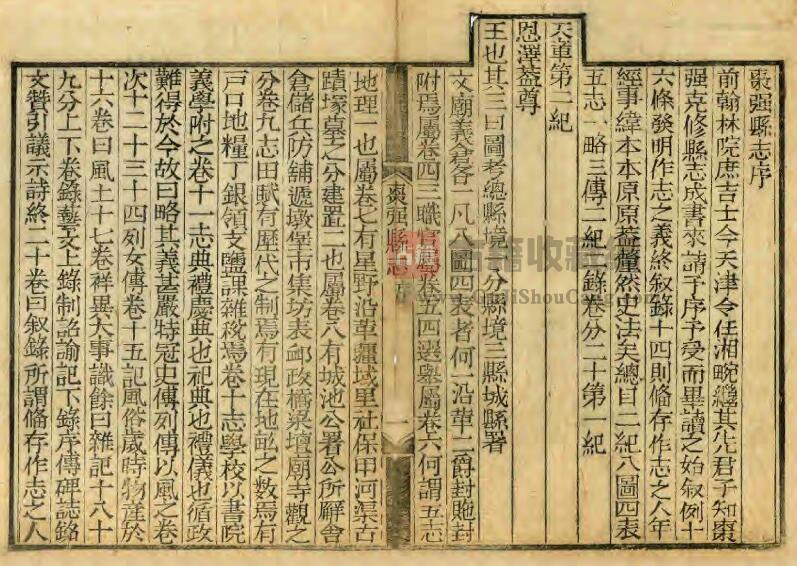 棗强縣志序
前翰林院庶吉士今天津令任湘畹繼其先君子知棗
强克修縣志成書來請予序予受而畢讀之始叙例十
六條發明作志之義終叙錄十四則備存作志之人年
經事緯本本原原葢犛然史法矣總目二紀八圖四表
五志一略三傳二紀一錄卷分二十第一紀
天章第二紀
恩澤葢尊
王也其三曰圖考總縣境一分縣境三縣城縣署
文廟義倉各一凡八圖四表者何一沿革二爵封貤封
附焉屬卷四三職官屬卷五四選舉屬卷六何謂五志
棗强縣志 序 一
地理一也屬卷七有星野沿革疆域里社保甲河渠古
蹟塚墓之分建置二也屬卷八有城池公署公所廨舍
倉儲兵防舖遞墩堡市集坊表郵政橋梁壇廟寺觀之
分卷九志田賦有歷代之制焉有現在地畝之數焉有
戸口地糧丁銀領支鹽課雜稅焉卷十志學校以書院
義學附之卷十一志典禮慶典也祀典也禮儀也循政
難得於今故曰略其義甚嚴特冠史傳列傳以風之卷
次十二十三十四列女傳卷十五記風俗歲時物產於
十六卷曰風土十七卷祥異大事識餘曰雜記十八十
九分上下卷錄藝文上錄制詔諭記下錄序傳碑誌銘
文贊引議示詩終二十卷曰叙錄所謂備存作志之人
古籍收藏
www.GuJiShouCang.com